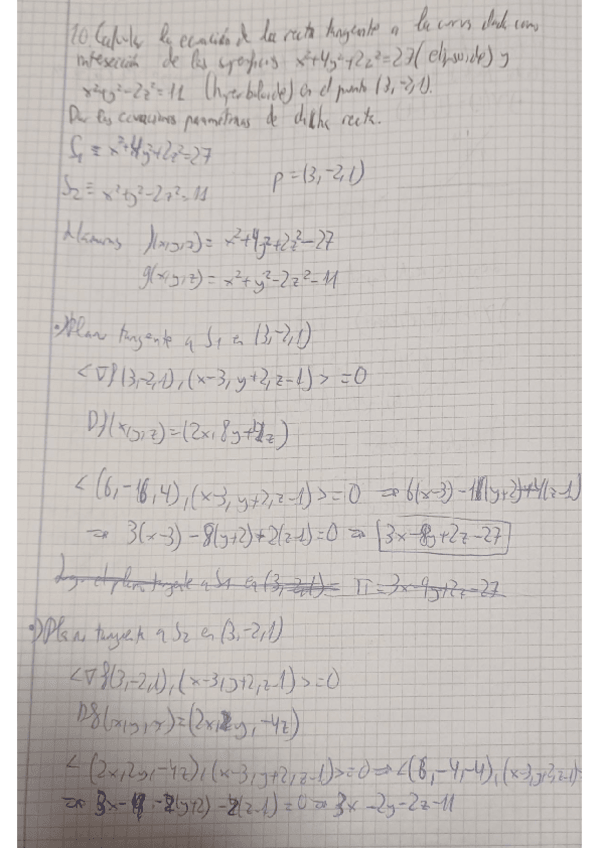 10. Calcular la ecuación de la recta tangente a la curva dada como
intersección de las superficies x²+4y²+2z²=27 (elipsoide) y
x²+y²-2z²=11 (hiperboloide) en el punto (3,-2,1).
Dar las ecuaciones paramétricas de dicha recta.
S₁ ≡ x²+4y²+2z²=27
S₂ ≡ x²+y²-2z²=11
p=(3,-2,1)
Llamamos f(x,y,z)= x²+4y²+2z²-27
g(x,y,z)= x²+y²-2z²-11
•)Plano tangente a S₁ en (3,-2,1)
<∇f(3,-2,1),(x-3,y+2,z-1)>=0
Df(x,y,z)=(2x,8y,4z)
<(6,-16,4),(x-3,y+2,z-1)>=0 ⇒ 6(x-3)-16(y+2)+4(z-1)
⇒ 3(x-3)-8(y+2)+2(z-1)=0 ⇒ 3x-8y+2z-27
el plano tangente a S₁ en (3,-2,1) π=3x-9y+2z-27
•)Plano tangente a S₂ en (3,-2,1)
<∇g(3,-2,1),(x-3,y+2,z-1)>=0
Dg(x,y,z)=(2x,2y,-4z)
<(2x,2y,-4z),(x-3,y+2,z-1)>=0 ⇒ <(6,-4,-4),(x-3,y+2,z-1)
⇒ 3x-9 -2(y+2) -2(z-1)=0 ⇒ 3x-2y-2z-11